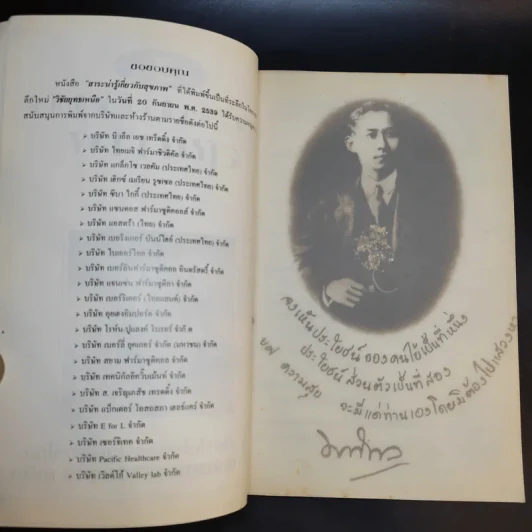 ขอขอบคุณ
หนังสือ "สาระน่ารู้เกี่ยวกับสุขภาพ" ที่ได้พิมพ์ขึ้นเป็นที่ระลึกใน
ตึกใหม่ "วิชัยยุทธเหนือ" ในวันที่ 20 กันยายน พ.ศ. 2539 ได้รับความ
สนับสนุนการพิมพ์จากบริษัทและห้างร้านตามรายชื่อดังต่อไปนี้
➢ บริษัท บี เอ็ล เอช เทรดดิ้ง จำกัด
➢ บริษัท ไทยเมจิ ฟาร์มาซิวติคัล จำกัด
➢ บริษัท แกล็กโซ เวลคัม (ประเทศไทย) จำกัด
➢ บริษัท เฮิกซ์ แมเรียน รูซเซล (ประเทศไทย) จำกัด
➢ บริษัท ซีบา ไกกี้ (ประเทศไทย) จำกัด
➢ บริษัท แซนดอส ฟาร์มาซูติคอลส์ จำกัด
➢ บริษัท แอสตร้า (ไทย) จำกัด
➢ บริษัท เบอริงเกอร์ มันน์ไฮม์ (ประเทศไทย) จำกัด
➢ บริษัท ไบเออร์ไทย จำกัด
➢ บริษัท เบอร์ลินฟาร์มาซูติคอล อินดรัสตรี้ จำกัด
➢ บริษัท แจนเซ่น ฟาร์มาซูติกา จำกัด
➢ บริษัท เบอร์ริงเกอร์ (ไทยแลนด์) จำกัด
➢ บริษัท ยูแดงอิมปอร์ต จำกัด
➢ บริษัท โรห์น-ปูแลงค์ โรเรอร์ จำกัด
➢ บริษัท เบอร์ลี่ ยุคเกอร์ จำกัด (มหาชน) จำกัด
➢ บริษัท สยาม ฟาร์มาซูติคอล จำกัด
➢ บริษัท เทคนิคัลอีควิ๊บเม้นท์ จำกัด
➢ บริษัท ส. เจริญเภสัช เทรดดิ้ง จำกัด
➢ บริษัท แบ็กเตอร์ โอสถสภา เฮลธ์แคร์ จำกัด
➢ บริษัท E for L จำกัด
➢ บริษัท เซอร์จิเทค จำกัด
➢ บริษัท Pacific Healthcare จำกัด
➢ บริษัท เวิลด์ไว้ Valley lab จำกัด
จงเห็นประโยชน์ ของตนไว้เป็นที่หนึ่ง
ประโยชน์ส่วนตัวเป็นที่สอง
ความสุข
จะมีแต่ท่านเองโดยมิต้องไปแสวงหา